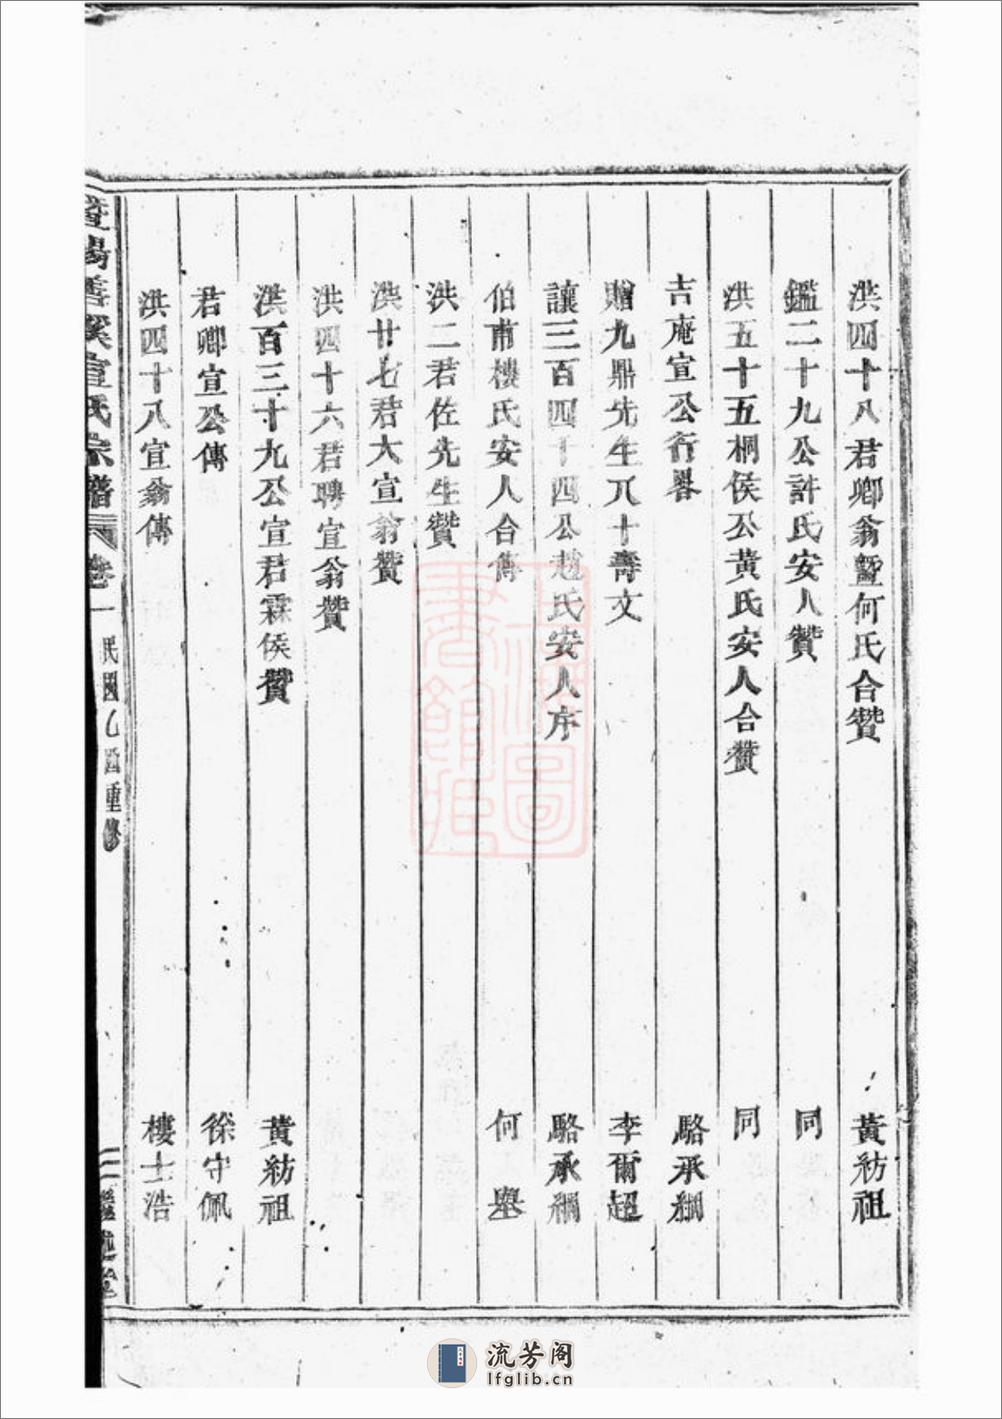 洪四十八君卿翁暨何氏合贊 黃紡祖
鑑二十九公許氏安人贊 同
洪五十五桐侯公黃氏安人合贊 同
吉庵宣公行畧 駱承綱
贈九鼎先生八十壽文 李爾超
讓三百四十四公趙氏安人序 駱承綱
伯甫樓氏安人合傳 何 壆
洪二君佐先生贊
洪廿七君大宣翁贊
洪四十六君聘宣翁贊
洪百三十九公宣君霖侯贊 黃紡祖
君卿宣公傳 徐守佩
洪四十八宣翁傳 樓士浩
暨陽善溪宣氏宗譜 卷一 民國乙酉重修 二 繼述堂
上海圖書館藏
流芳阁
lfglib.cn